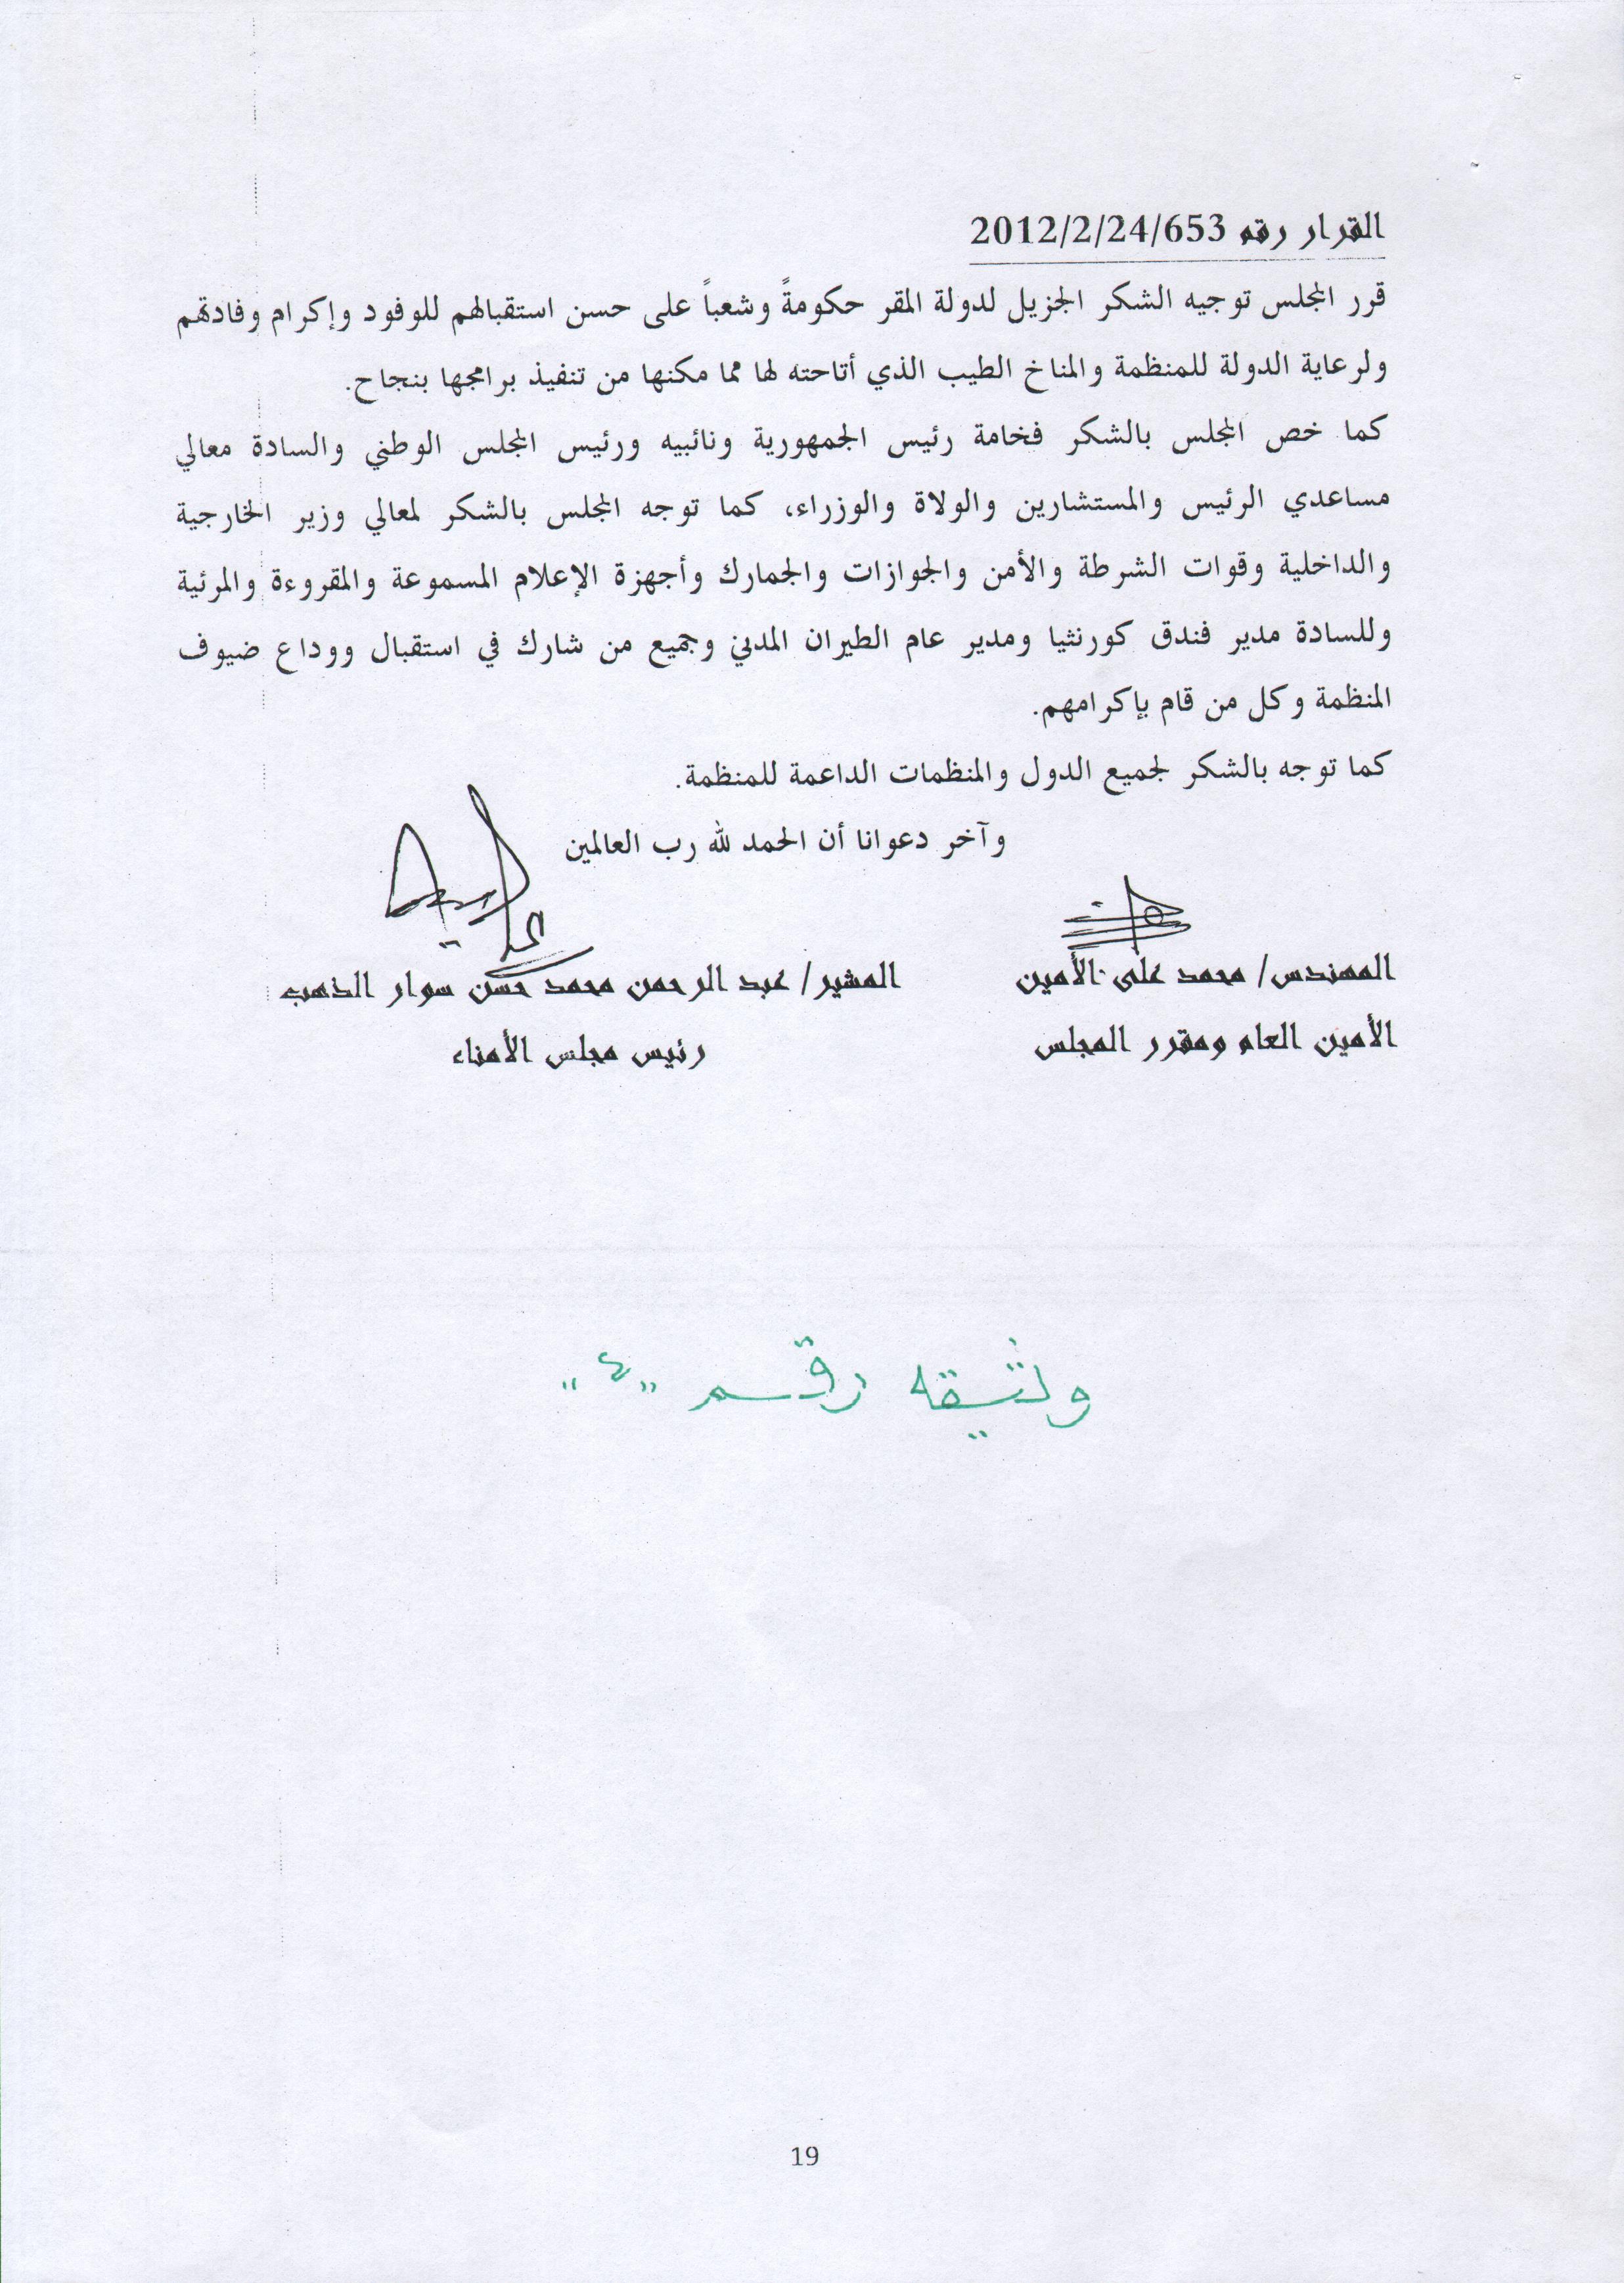 القرار رقم 2012/2/24/653
قرر المجلس توجيه الشكر الجزيل لدولة المقر حكومةً وشعباً على حسن استقبالهم للوفود وإكرام وفادتهم
ولرعاية الدولة للمنظمة والمناخ الطيب الذي أتاحته لها مما مكنها من تنفيذ برامجها بنجاح.
كما خص المجلس بالشكر فخامة رئيس الجمهورية ونائبيه ورئيس المجلس الوطني والسادة معالي
مساعدي الرئيس والمستشارين والولاة والوزراء، كما توجه المجلس بالشكر لمعالي وزير الخارجية
والداخلية وقوات الشرطة والأمن والجوازات والجمارك وأجهزة الإعلام المسموعة والمقروءة والمرئية
وللسادة مدير فندق كورنثيا ومدير عام الطيران المدني وجميع من شارك في استقبال ووداع ضيوف
المنظمة وكل من قام بإكرامهم.
كما توجه بالشكر لجميع الدول والمنظمات الداعمة للمنظمة.
وآخر دعوانا أن الحمد لله رب العالمين
المهندس/ محمد على الأمين
المشير/ عبد الرحمن محمد حسن سوار الذهب
الأمين العام ومقرر المجلس
رئيس مجلس الأمناء
وثيقه رقم "٤"
19